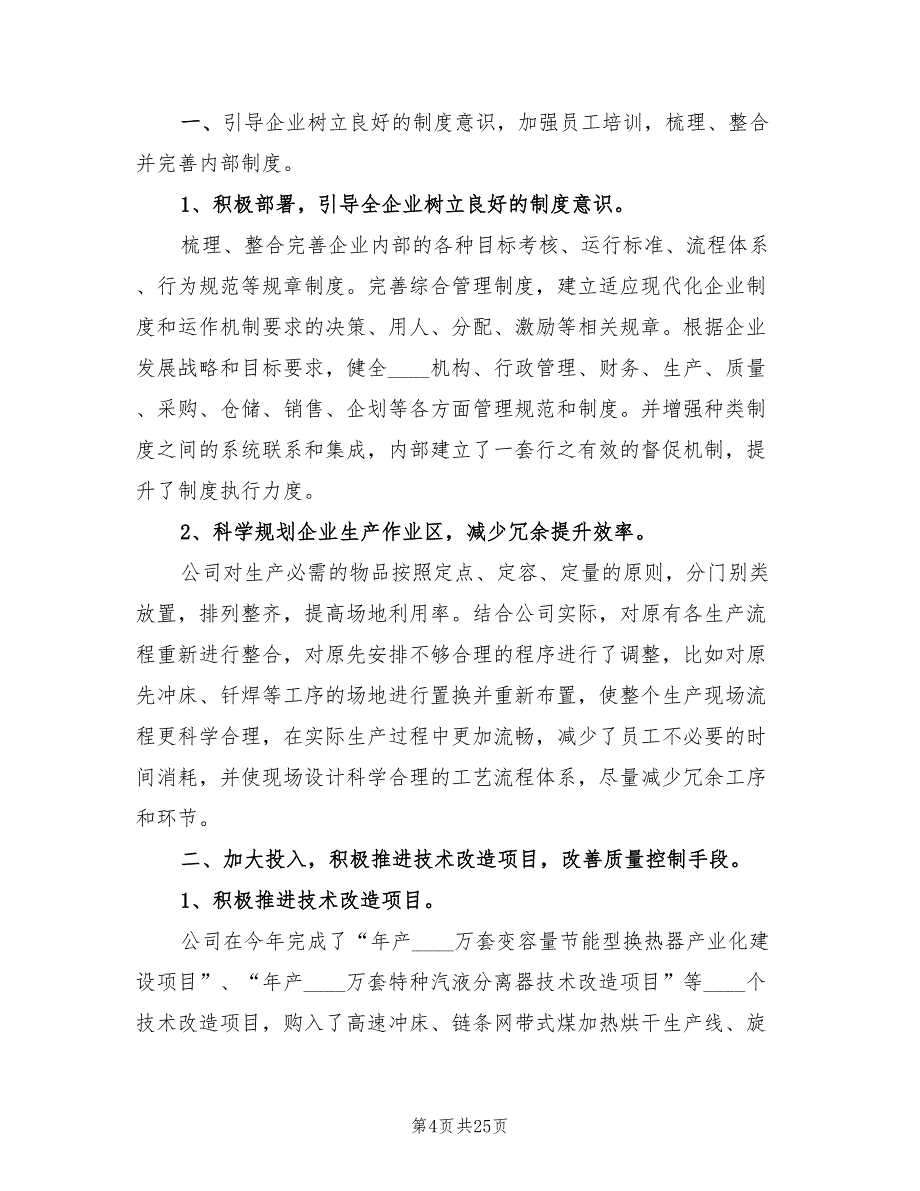 一、引导企业树立良好的制度意识，加强员工培训，梳理、整合
并完善内部制度。
1、积极部署，引导全企业树立良好的制度意识。
梳理、整合完善企业内部的各种目标考核、运行标准、流程体系
、行为规范等规章制度。完善综合管理制度，建立适应现代化企业制
度和运作机制要求的决策、用人、分配、激励等相关规章。根据企业
发展战略和目标要求，健全____机构、行政管理、财务、生产、质量
、采购、仓储、销售、企划等各方面管理规范和制度。并增强种类制
度之间的系统联系和集成，内部建立了一套行之有效的督促机制，提
升了制度执行力度。
2、科学规划企业生产作业区，减少冗余提升效率。
公司对生产必需的物品按照定点、定容、定量的原则，分门别类
放置，排列整齐，提高场地利用率。结合公司实际，对原有各生产流
程重新进行整合，对原先安排不够合理的程序进行了调整，比如对原
先冲床、钎焊等工序的场地进行置换并重新布置，使整个生产现场流
程更科学合理，在实际生产过程中更加流畅，减少了员工不必要的时
间消耗，并使现场设计科学合理的工艺流程体系，尽量减少冗余工序
和环节。
二、加大投入，积极推进技术改造项目，改善质量控制手段。
1、积极推进技术改造项目。
公司在今年完成了“年产____万套变容量节能型换热器产业化建
设项目”、“年产____万套特种汽液分离器技术改造项目”等____个
技术改造项目，购入了高速冲床、链条网带式煤加热烘干生产线、旋
第4页共25页